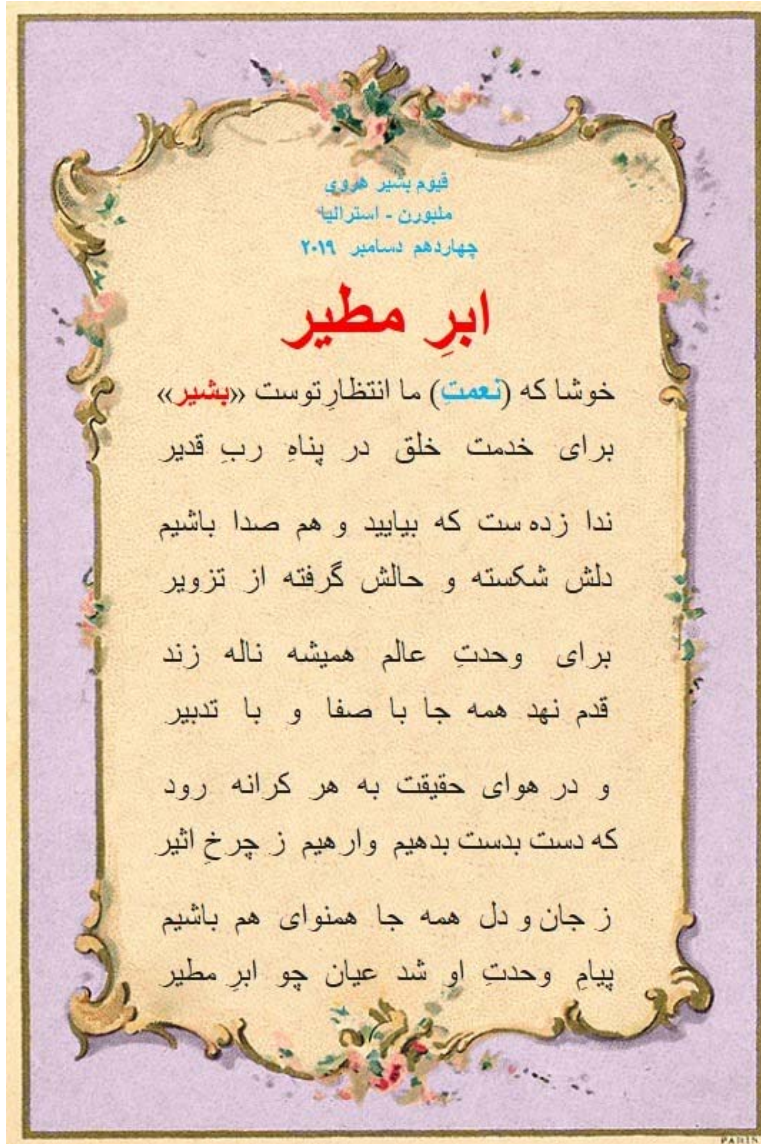 قیوم بشیر هروی
ملبورن - استرالیا
چهاردهم دسامبر ۲۰۱۹
ابرِ مطیر
خوشا که (نعمتِ) ما انتظارِ توست «بشیر»
برای خدمت خلق در پناهِ ربِ قدیر
ندا زده ست که بیایید و هم صدا باشیم
دلش شکسته و حالش گرفته از تزویر
برای وحدتِ عالم همیشه ناله زند
قدم نهد همه جا با صفا و با تدبیر
و در هوای حقیقت به هر کرانه رود
که دست بدست بدهیم وارهیم ز چرخِ اثیر
ز جان و دل همه جا همنوای هم باشیم
پیامِ وحدتِ او شد عیان چو ابرِ مطیر
PARIS